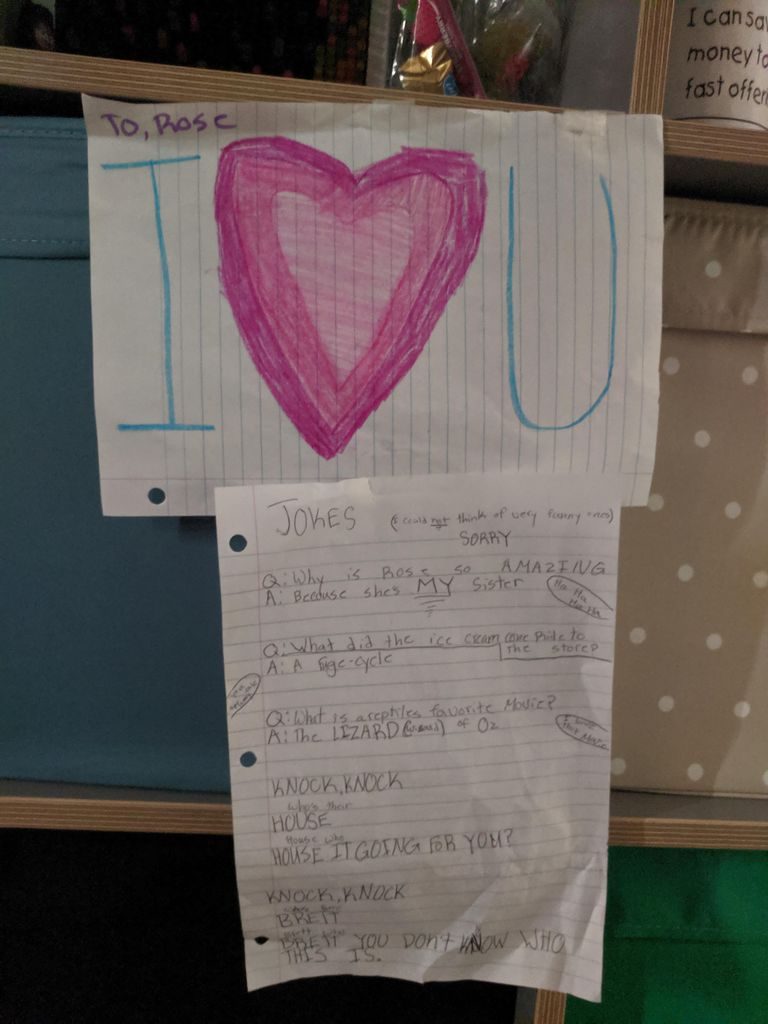 I can sav
money to
fast offer
To, Rose
I U
JOKES (I could not think of very funny ones)
SORRY
Q: Why is Rose so AMAZING
A: Because shes MY sister
Ha Ha
Ha Ha
Q: What did the ice cream cone Ride to
The store?
A: A
Q: What is a reptiles favorite Movie?
A: The LIZARD (wizard) of Oz
I love
that Movie
KNOCK, KNOCK
Who's their
HOUSE
House who
HOUSE IT GOING FOR YOU?
KNOCK, KNOCK
BRETT
BRETT YOU DON't KNOW WHO
THIS IS.